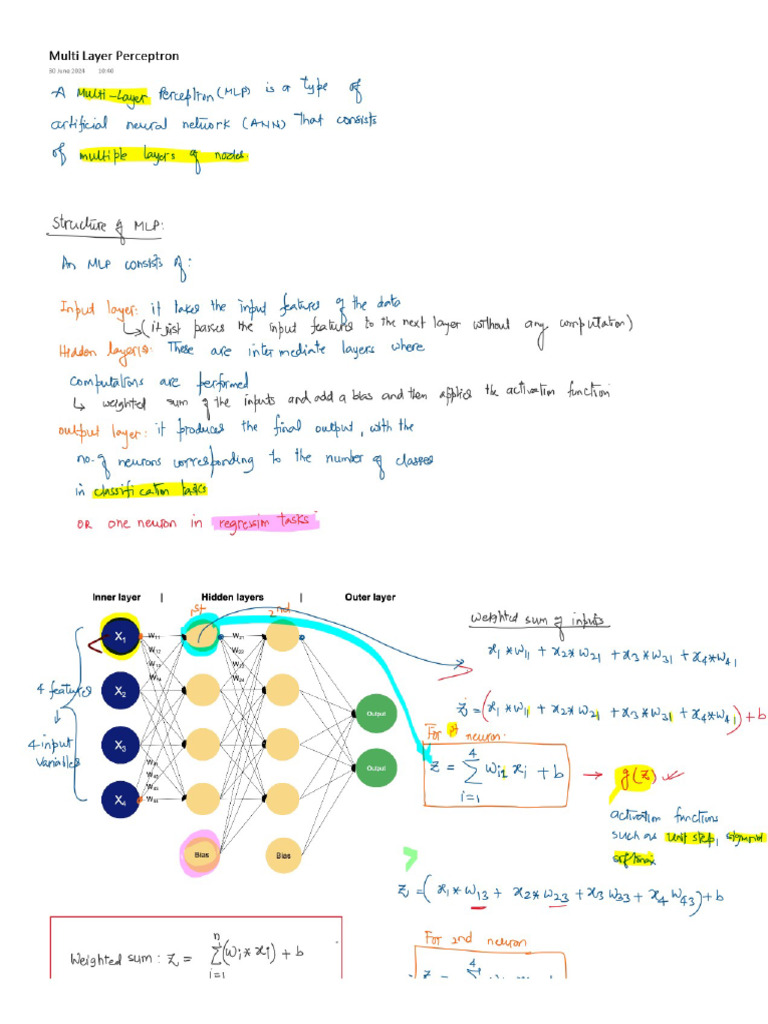 Multi Layer Perceptron
30 June 2024 10:46
A Multi-Layer Perceptron (MLP) is a type of
artificial neural network (ANN) that consists
of multiple layers of nodes.
Structure of MLP:
An MLP consists of:
Input layer: it takes the input features of the data
(it just passes the input features to the next layer without any computation)
Hidden layer/s: These are intermediate layers where
computations are performed
↳ weighted sum of the inputs and add a bias and then applies the activation function
output layer: it produces the final output, with the
no. of neurons corresponding to the number of classes
in classification tasks
OR one neuron in regression tasks
Inner layer | Hidden layers | Outer layer
1st 2nd
X1 W11 W12 W13 W14
W21 W22 W23 W24
X2
X3
X4 W41 W42 W43 W44
4 features
↓
4 input
variables
Output
Output
Bias Bias
weighted sum of inputs
x1*w11 + x2*w21 + x3*w31 + x4*w41
z = (x1*w11 + x2*w21 + x3*w31 + x4*w41) + b
For 1st neuron:
z = 4 Σ i=1 wi1 xi + b → g(z) ✓
activation functions
such as unit step, sigmoid
softmax
?
z = (x1*w13 + x2*w23 + x3w33 + x4w43) + b
Weighted sum: z = n Σ i=1 (wi * xi) + b
For 2nd neuron
4